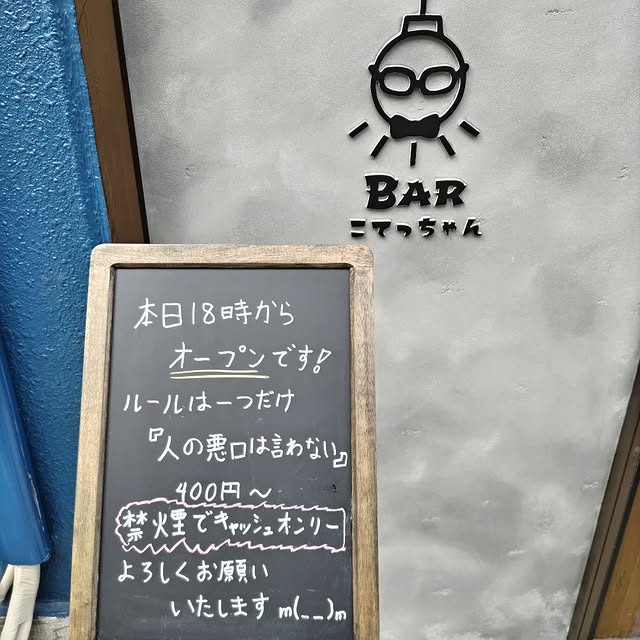 BAR
こてっちゃん
本日18時から
オープンです!
ルールは一つだけ
『人の悪口は言わない』
400円〜
禁煙でキャッシュオンリー
よろしくお願い
いたします m(__)m